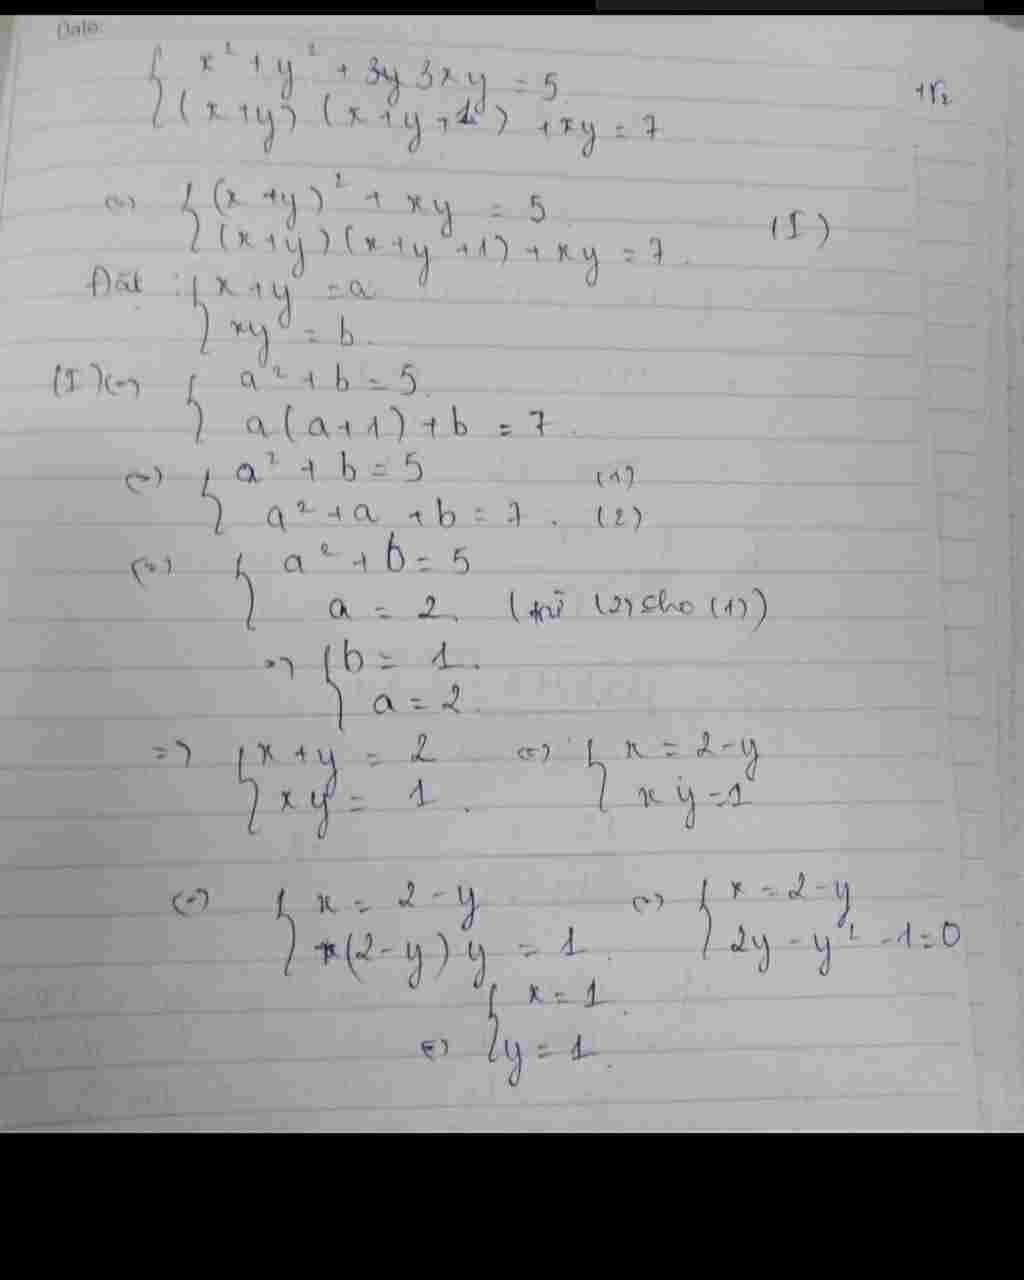 Date:
{ x² + y² + 3y 3xy = 5
(x+y) (x+y+1) + xy = 7
(=) { (x+y)² + xy = 5
(x+y)(x+y+1) + xy = 7. (I)
Đặt : { x+y = a
xy = b.
(I) (=) { a² + b = 5
a(a+1) + b = 7.
(=) { a² + b = 5 (1)
a² + a + b = 7. (2)
(=) { a² + b = 5
a = 2. (trừ (2) cho (1))
=> { b = 1.
a = 2
=> { x+y = 2 (=) { x = 2-y
xy = 1. xy = 1
(=) { x = 2-y (=) { x = 2-y
(2-y)y = 1. 2y - y² - 1 = 0
(=) { x = 1.
y = 1.